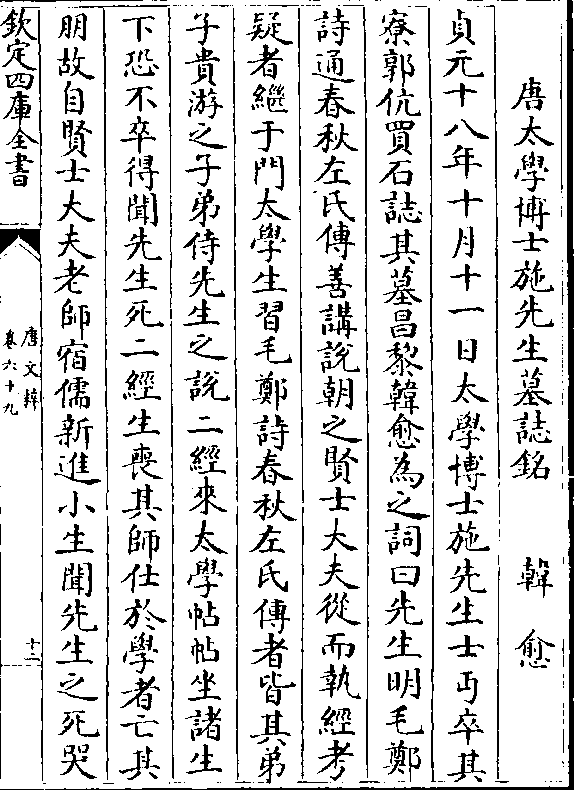 唐太學博士施先生墓誌銘 韓愈
貞元十八年十月十一日太學博士施先生士丐卒其
寮郭伉買石誌其墓昌黎韓愈為之詞曰先生明毛鄭
詩通春秋左氏傳善講說朝之賢士大夫從而執經考
疑者繼于門太學生習毛鄭詩春秋左氏傳者皆其弟
子貴游之子弟侍先生之說二經來太學帖帖坐諸生
下恐不卒得聞先生死二經生喪其師仕於學者亡其
朋故自賢士大夫老師宿儒新進小生聞先生之死哭
欽定四庫全書
唐文粹
卷六十九
十二